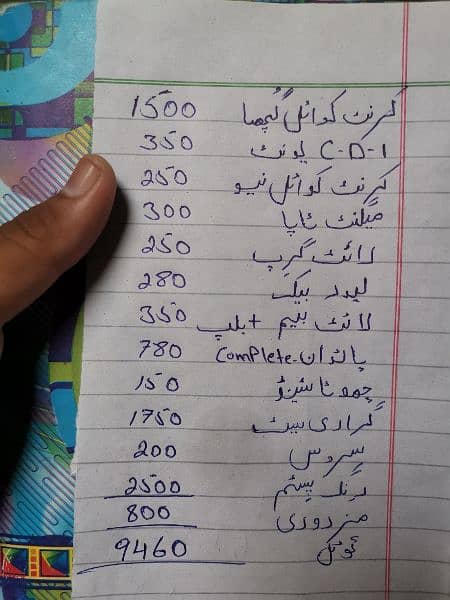 کرنٹ کوائل گچھا 1500
C-D-I یونٹ 350
کرنٹ کوائل نیو 250
میگنٹ ٹاپا 300
لائٹ گرپ 250
لیور بیک 280
لائٹ بیم + بلب 350
پائدان Complete 780
چھوٹا شیشہ 150
گراری سیٹ 1750
سروس 200
رنگ پسٹم 2500
مزدوری 800
ٹوٹل 9460